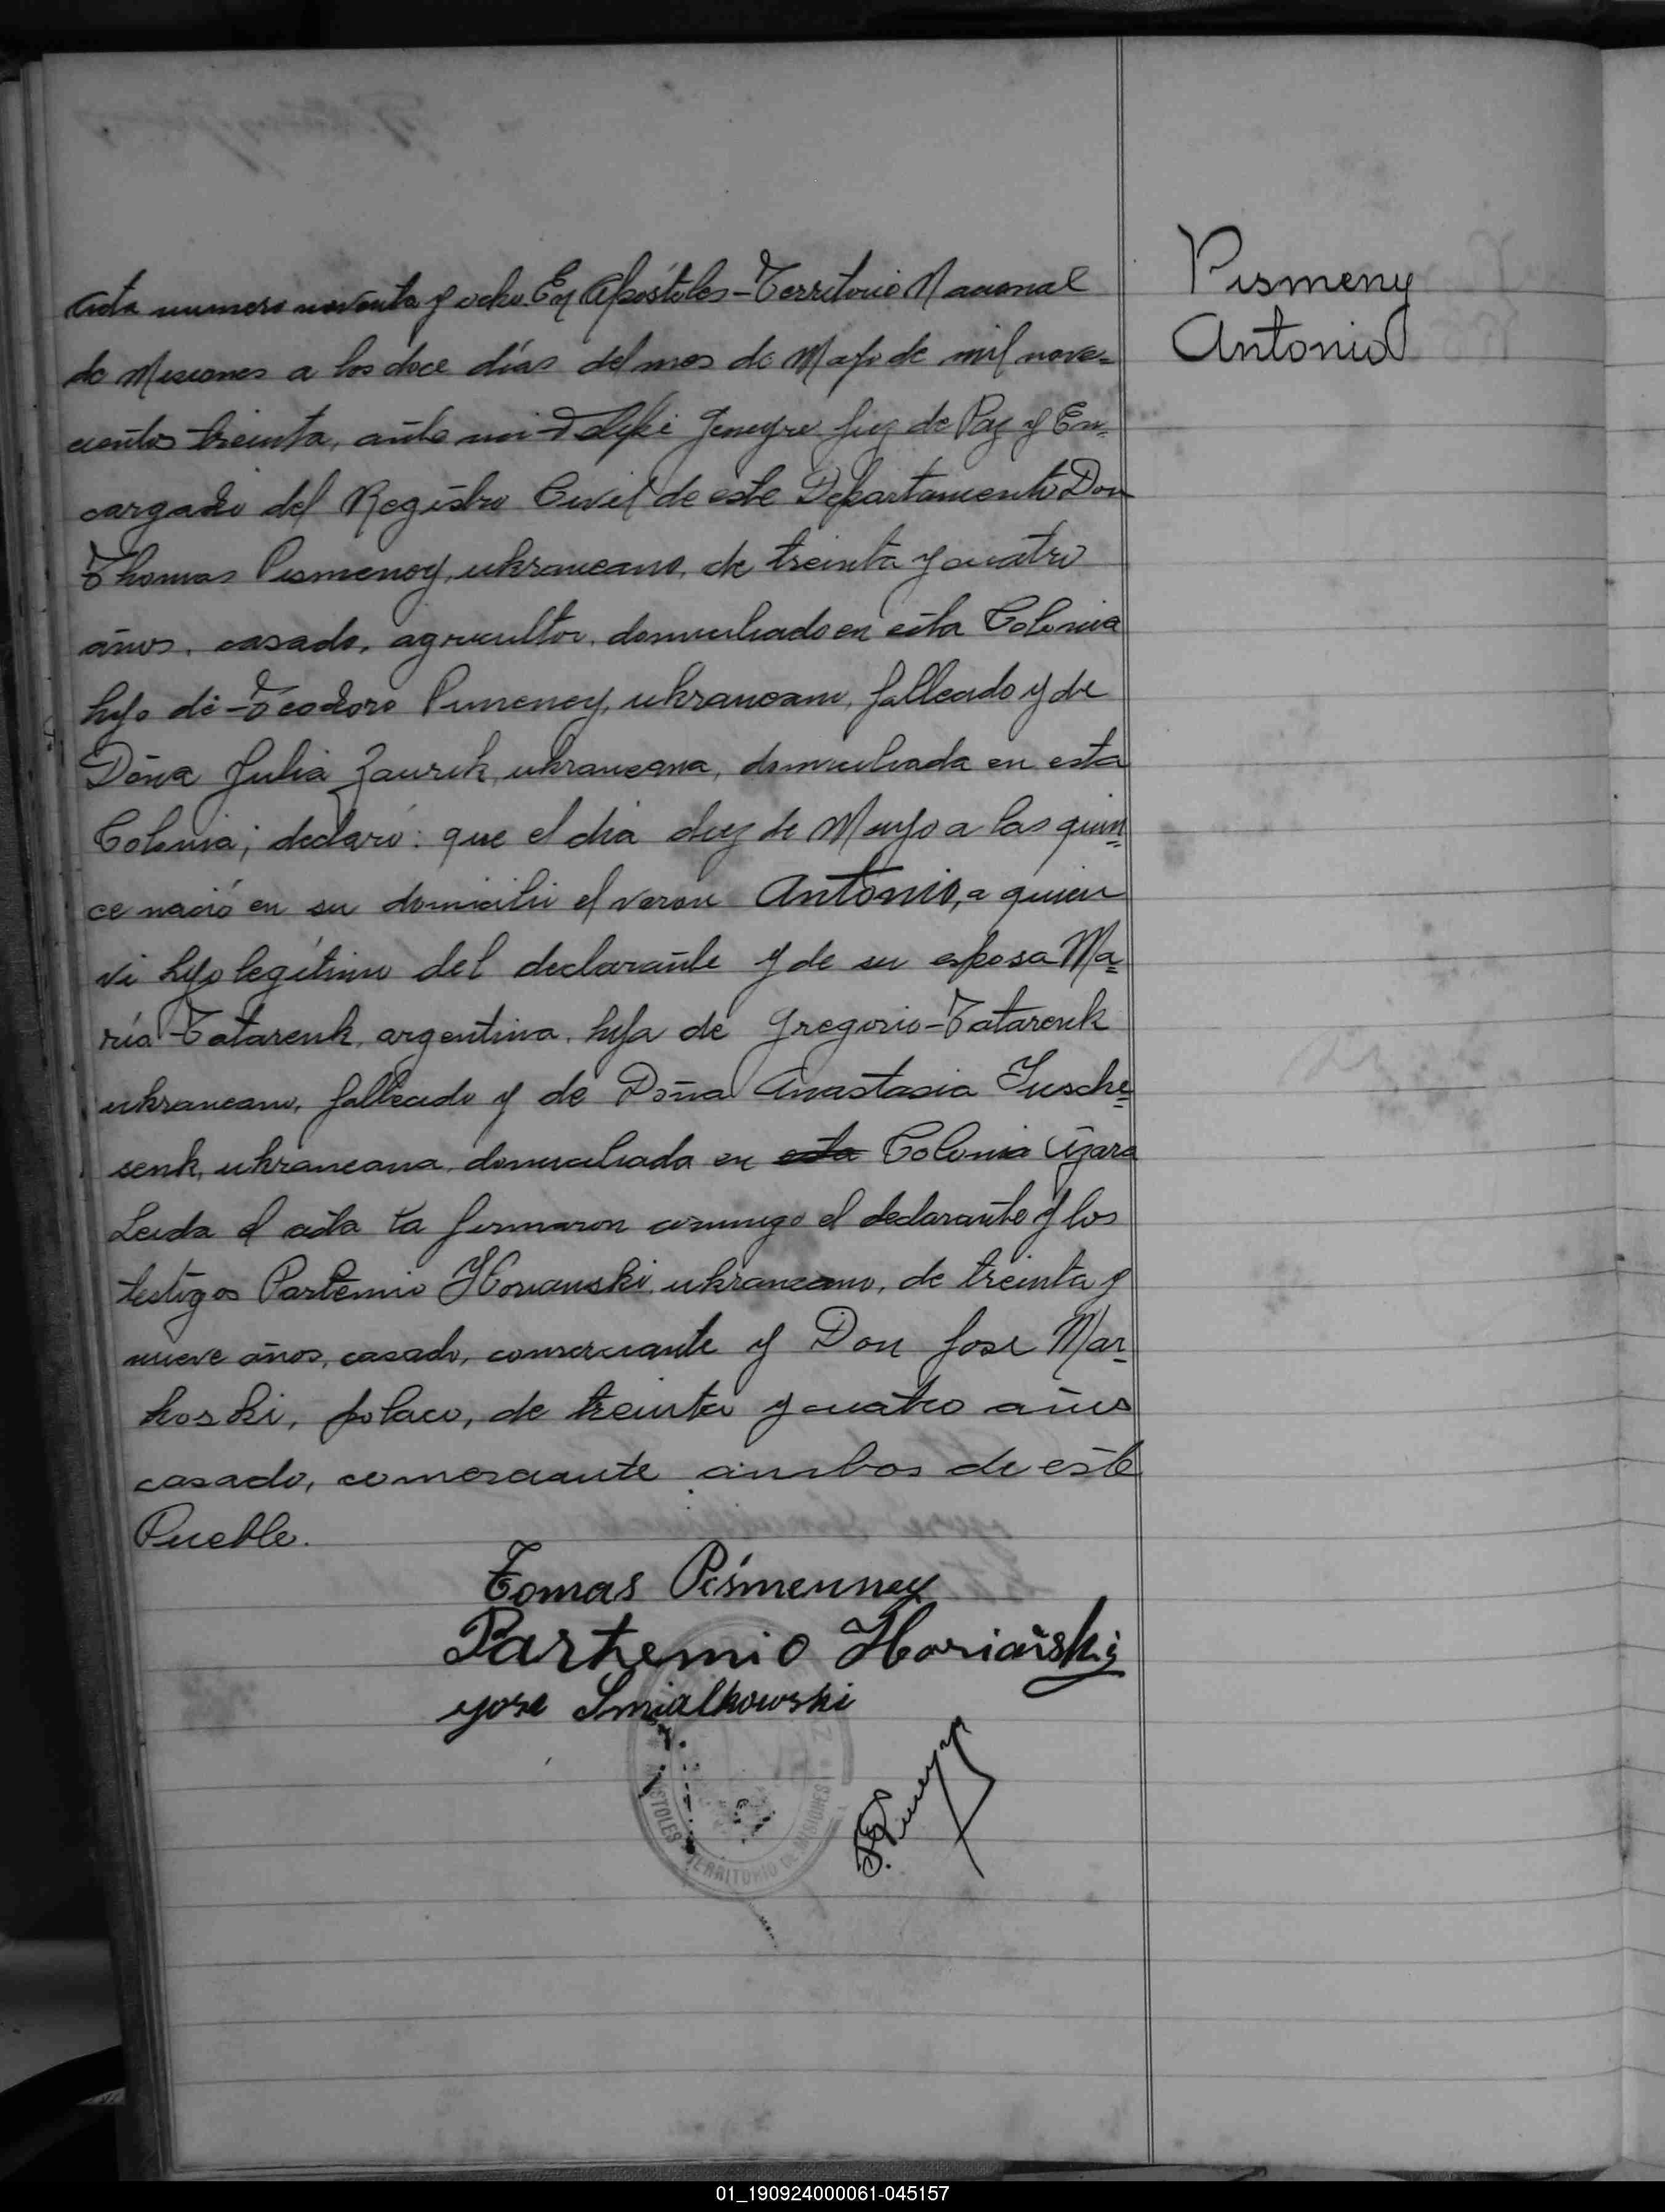 Pismeny
Antonio
Acta numero noventa y ocho En Apóstoles-Territorio Nacional
de Misiones a los doce días del mes de Mayo de mil nove=
cientos treinta, ante mi Juez de Paz y En=
cargado del Registro Civil de este Departamento Don
Thomas Pismenoy, ukraneano, de treinta y cuatro
años, casado, agricultor, domiciliado en esta Colonia
hijo de Teodoro Pimeney, ukraneano, fallecido y de
Doña Julia Zaurek, ukraneana, domiciliada en esta
Colonia; declaró: que el dia diez de Mayo a las quin=
ce nació en su domicilio el varon Antonio, a quien
vi hijo legítimo del declarante y de su esposa Ma=
ría Tatarenk, argentina, hija de Gregorio Tatarenk
ukraneano, fallecido y de Doña Anastasia Jusche=
senk, ukraneana, domiciliada en esta Colonia Azara
Leida el acta la firmaron conmigo el declarante y los
testigos Partemio Horianski, ukraneano, de treinta y
nueve años, casado, comerciante y Don Jose Mar=
koski, polaco, de treinta y cuatro años
casado, comerciante ambos de este
Pueblo.
Tomas Pismenney
Partemio Horiański
yose Smialkowski
APOSTOLES TERRITORIO DE MISIONES
01_190924000061-045157